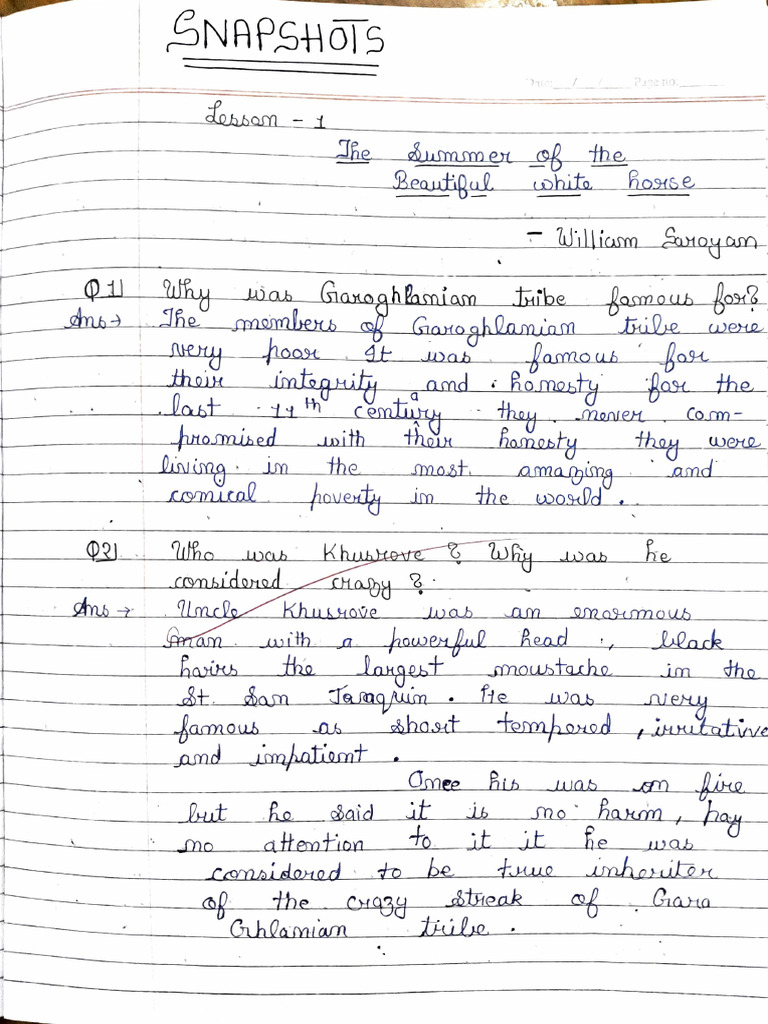 SNAPSHOTS
Date: __/__/__ Page no: ____
Lesson - 1
The Summer of the
Beautiful white horse
- William Saroyan
Q1) Why was Garoghlanian tribe famous for?
Ans → The members of Garoghlanian tribe were
very poor It was famous for
their integrity and honesty for the
last 11th century they never com-
promised with their honesty they were
living in the most amazing and
comical poverty in the world.
Q2) Who was Khusrove? Why was he
considered crazy?
Ans → Uncle Khusrove was an enormous
man with a powerful head, black
hairs the largest moustache in the
St. San Joaquin. He was very
famous as short tempered, irritative
and impatient.
Once his was on fire
but he said it is no harm, pay
no attention to it it he was
considered to be true inheriter
of the crazy streak of Garo
Ghlamian tribe.